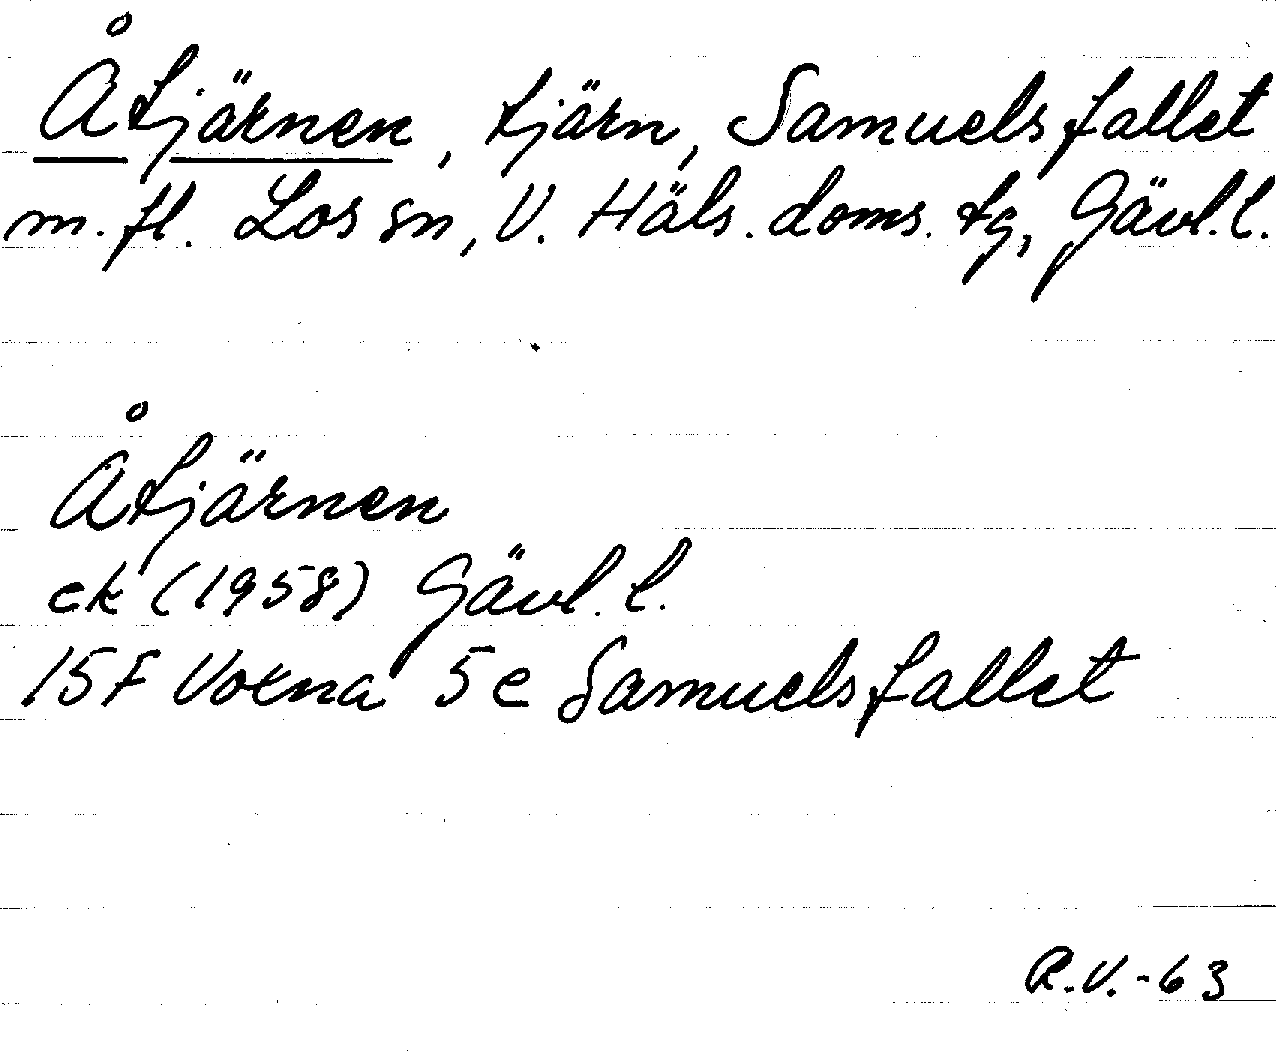 Åtjärnen, tjärn, Samuelsfallet
m. fl. Los sn, V. Häls. doms. tg, Gävl. l.
Åtjärnen
ek (1958) Gävl. l.
15F Voxna 5e Samuelsfallet
R.V.-63